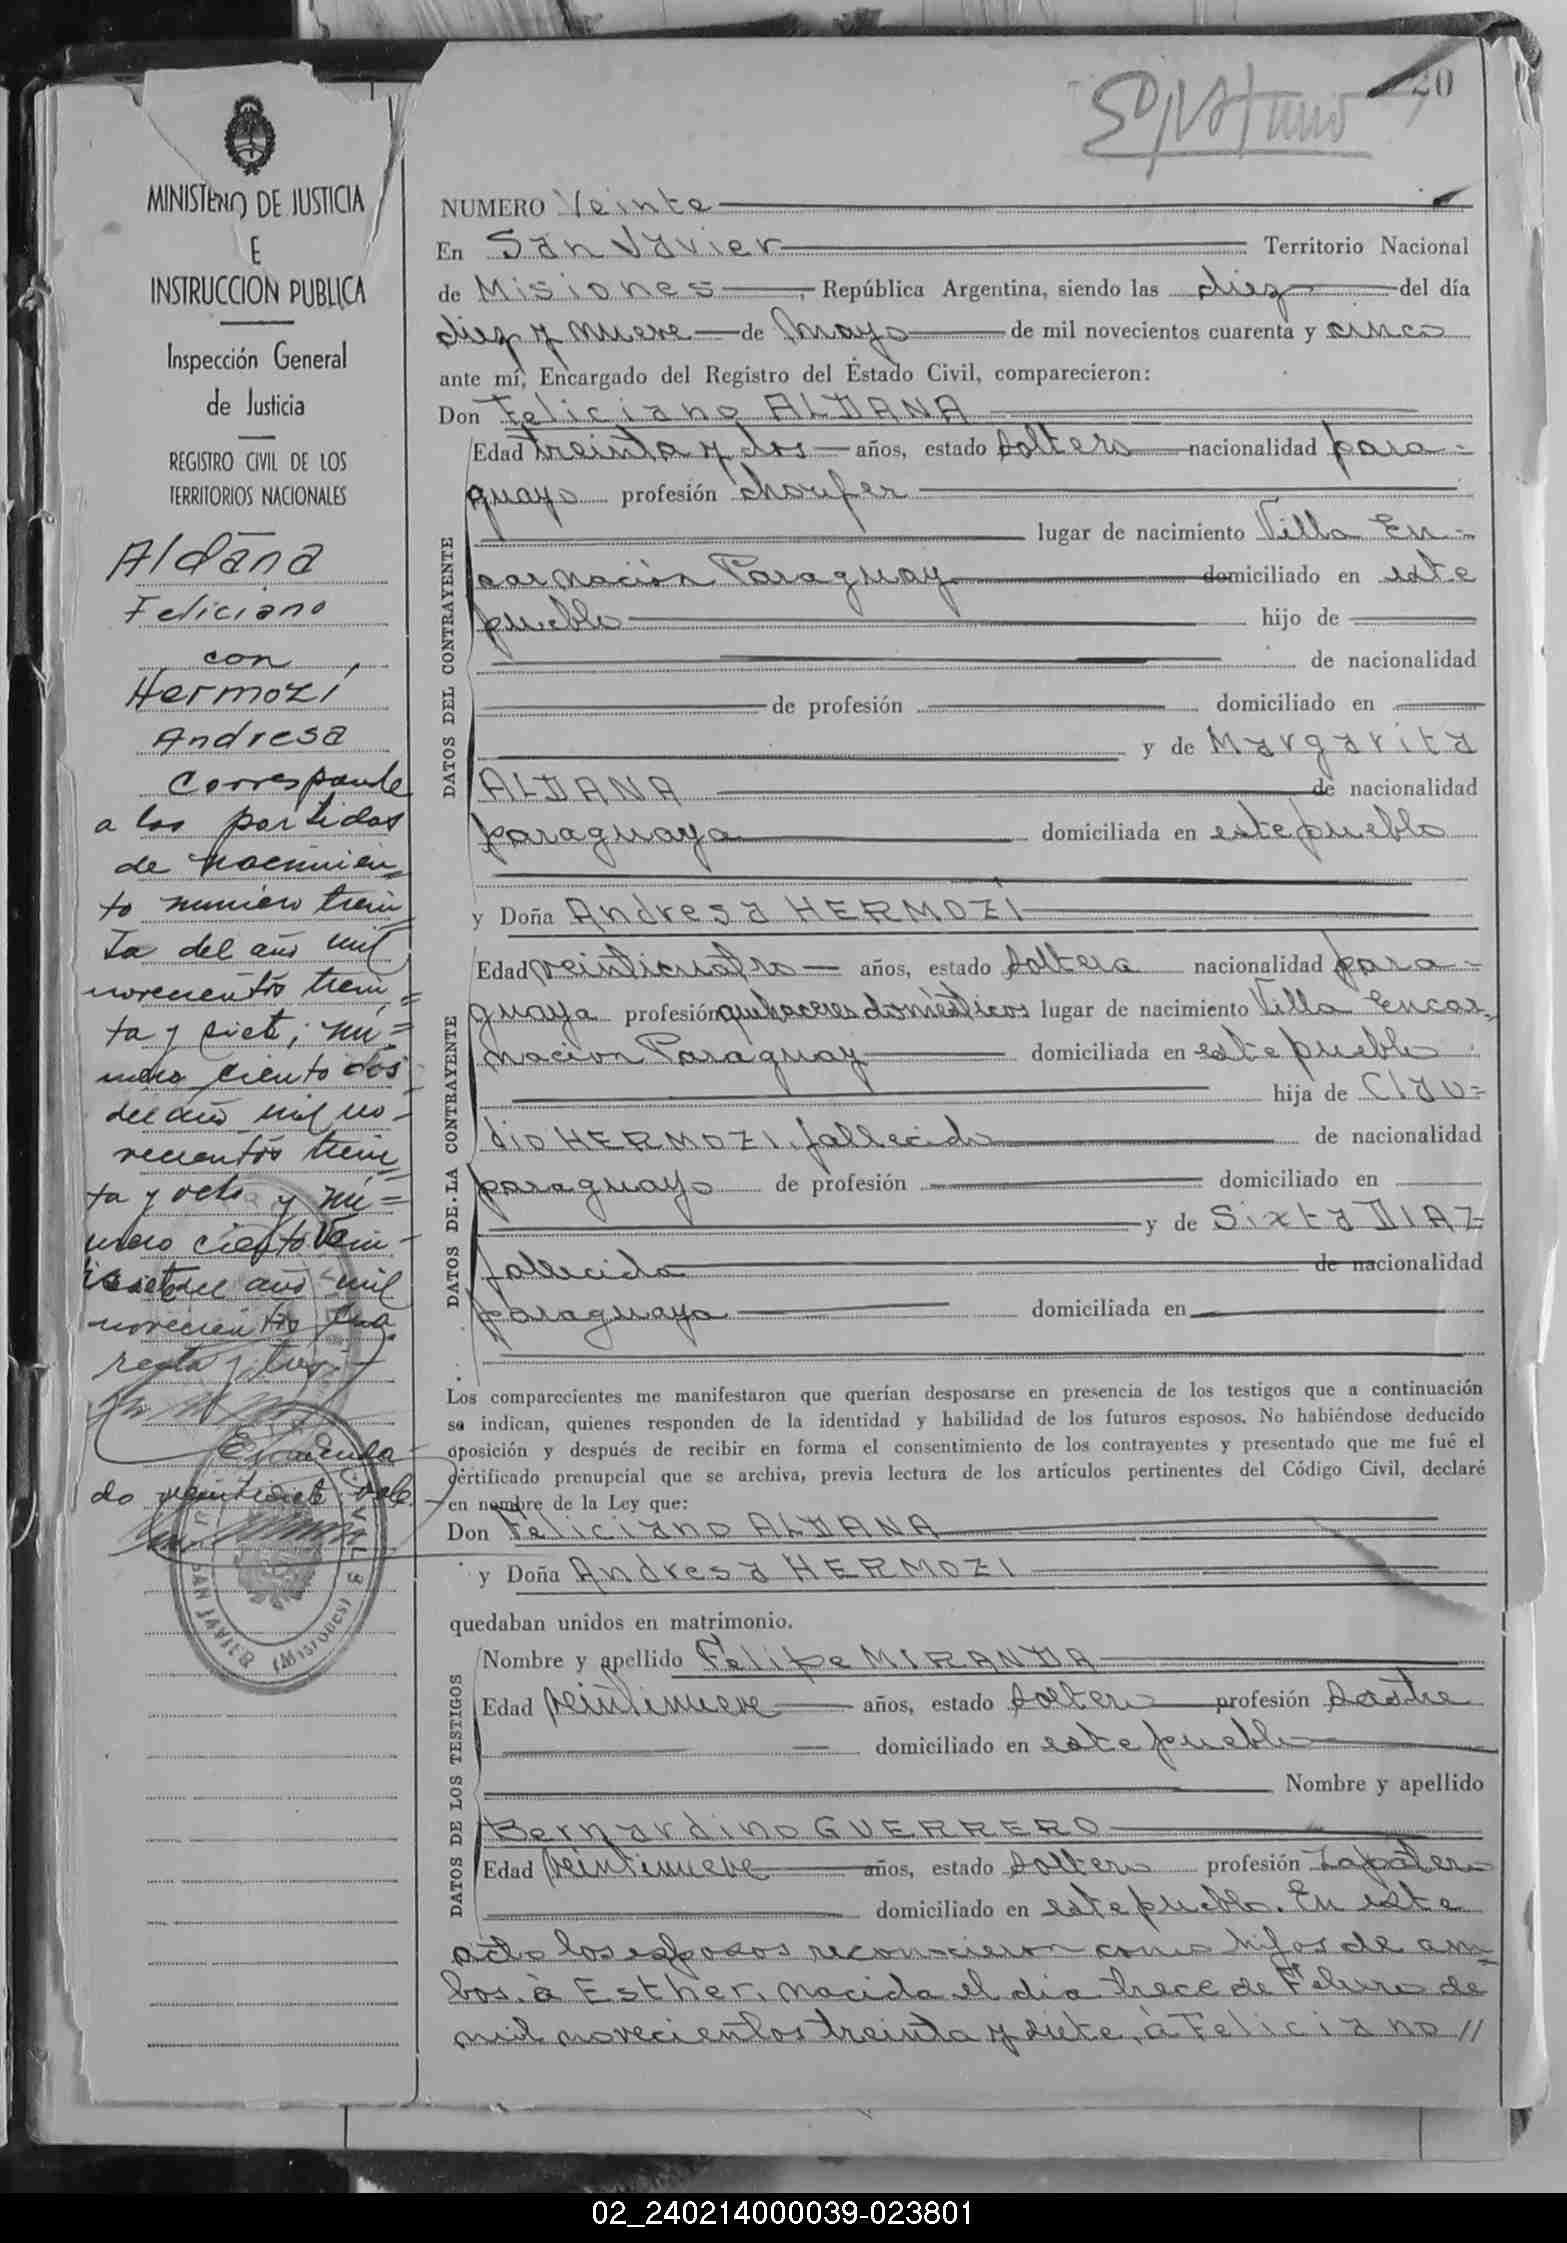 20
MINISTERIO DE JUSTICIA
E
INSTRUCCION PUBLICA
Inspección General
de Justicia
REGISTRO CIVIL DE LOS
TERRITORIOS NACIONALES
Aldana
Feliciano
con
Hermozí
Andresa
Corresponde
a las partidas
de nacimien=
to número trein=
ta del año mil
novecientos trein=
ta y siete; nú=
mero ciento dos
del año mil no-
vecientos trein=
ta y ocho y nú=
mero ciento vein-
tisiete del año mil
novecientos cua
renta y tres.-
Enmenda-
do veintisiete Vale.
SAN JAVIER (Misiones)
NUMERO Veinte
En San Javier Territorio Nacional
de Misiones, República Argentina, siendo las diez del día
diez y nueve de Mayo de mil novecientos cuarenta y cinco
ante mí, Encargado del Registro del Estado Civil, comparecieron:
Don Feliciano ALDANA
DATOS DEL CONTRAYENTE
Edad treinta y dos años, estado soltero nacionalidad para=
guayo profesión choufer
lugar de nacimiento Villa En=
carnación Paraguay domiciliado en este
pueblo hijo de
de nacionalidad
de profesión domiciliado en
y de Margarita
ALDANA de nacionalidad
paraguaya domiciliada en este pueblo
y Doña Andresa HERMOZI
DATOS DE LA CONTRAYENTE
Edad veinticuatro años, estado soltera nacionalidad para=
guaya profesión quehaceres domésticos lugar de nacimiento Villa Encar=
nación Paraguay domiciliada en este pueblo
hija de Clau=
dio HERMOZI, fallecido de nacionalidad
paraguayo de profesión domiciliado en
y de Sixta DIAZ
fallecida de nacionalidad
paraguaya domiciliada en
Los comparecientes me manifestaron que querían desposarse en presencia de los testigos que a continuación
se indican, quienes responden de la identidad y habilidad de los futuros esposos. No habiéndose deducido
oposición y después de recibir en forma el consentimiento de los contrayentes y presentado que me fué el
certificado prenupcial que se archiva, previa lectura de los artículos pertinentes del Código Civil, declaré
en nombre de la Ley que:
Don Feliciano ALDANA
y Doña Andresa HERMOZI
quedaban unidos en matrimonio.
DATOS DE LOS TESTIGOS
Nombre y apellido Felipe MIRANDA
Edad veintinueve años, estado soltero profesión sastre
domiciliado en este pueblo
Nombre y apellido
Bernardino GUERRERO
Edad veintinueve años, estado soltero profesión zapatero
domiciliado en este pueblo. En este
acto los esposos reconocieron como hijos de am=
bos. à Esther, nacida el dia trece de Febrero de
mil novecientos treinta y siete, à Feliciano //
02_240214000039-023801